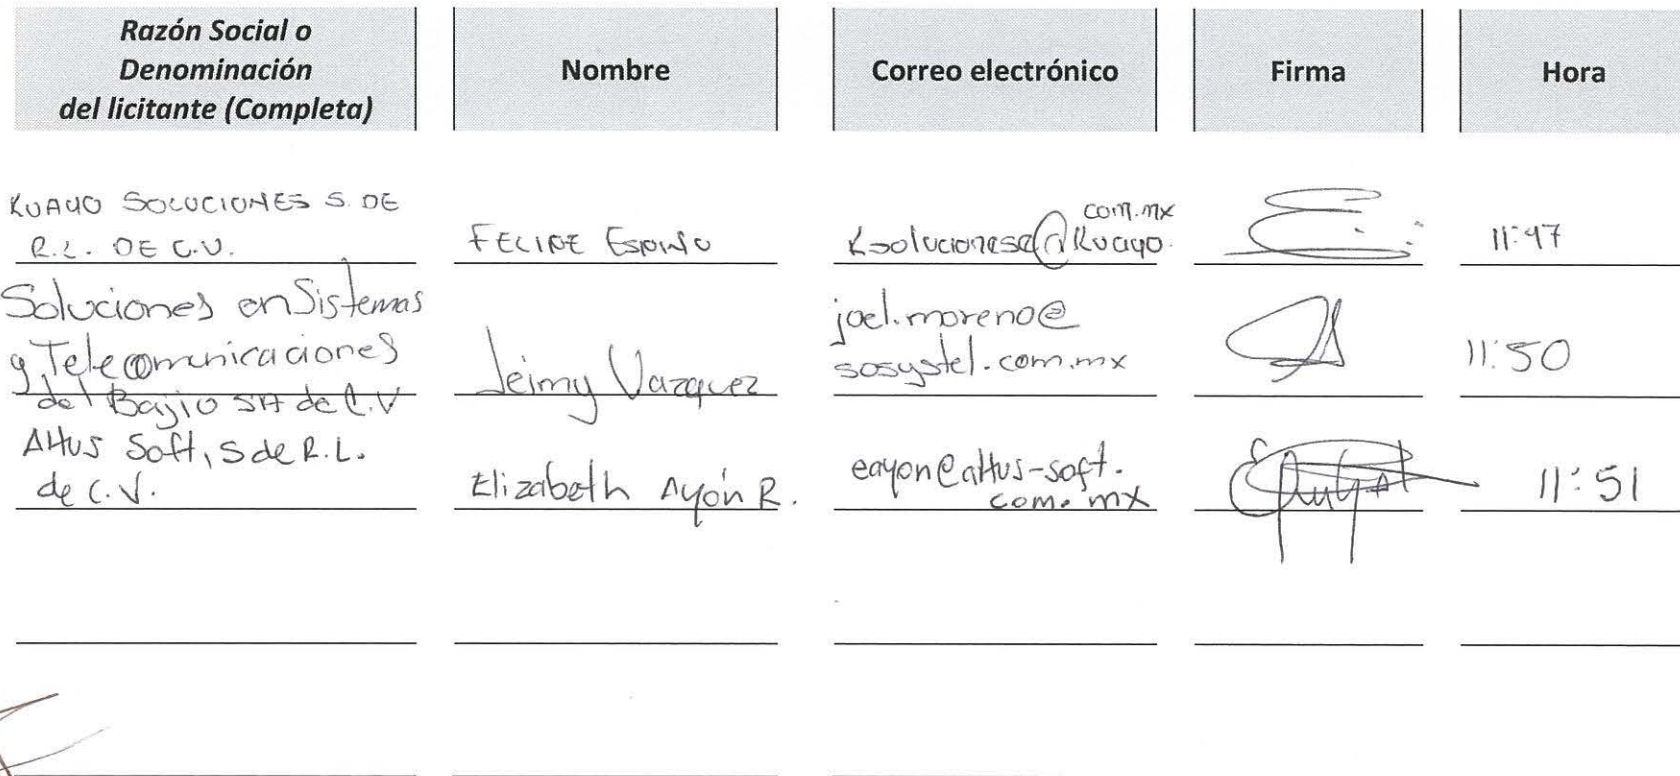 Razón Social o
Denominación
del licitante (Completa)
Nombre
Correo electrónico
Firma
Hora
KUAYO SOLUCIONES S. DE
R.L. DE C.V.
FELIPE Espino
com.mx
Ksoluciones@Kuayo.
11:47
Soluciones en Sistemas
y Telecomunicaciones
del Bajio SA de C.V
Jeimy Vazquez
joel.moreno@
sosystel.com.mx
11:50
Altus Soft, S de R.L.
de C.V.
Elizabeth Ayón R.
eayon@altus-soft.
com.mx
11:51